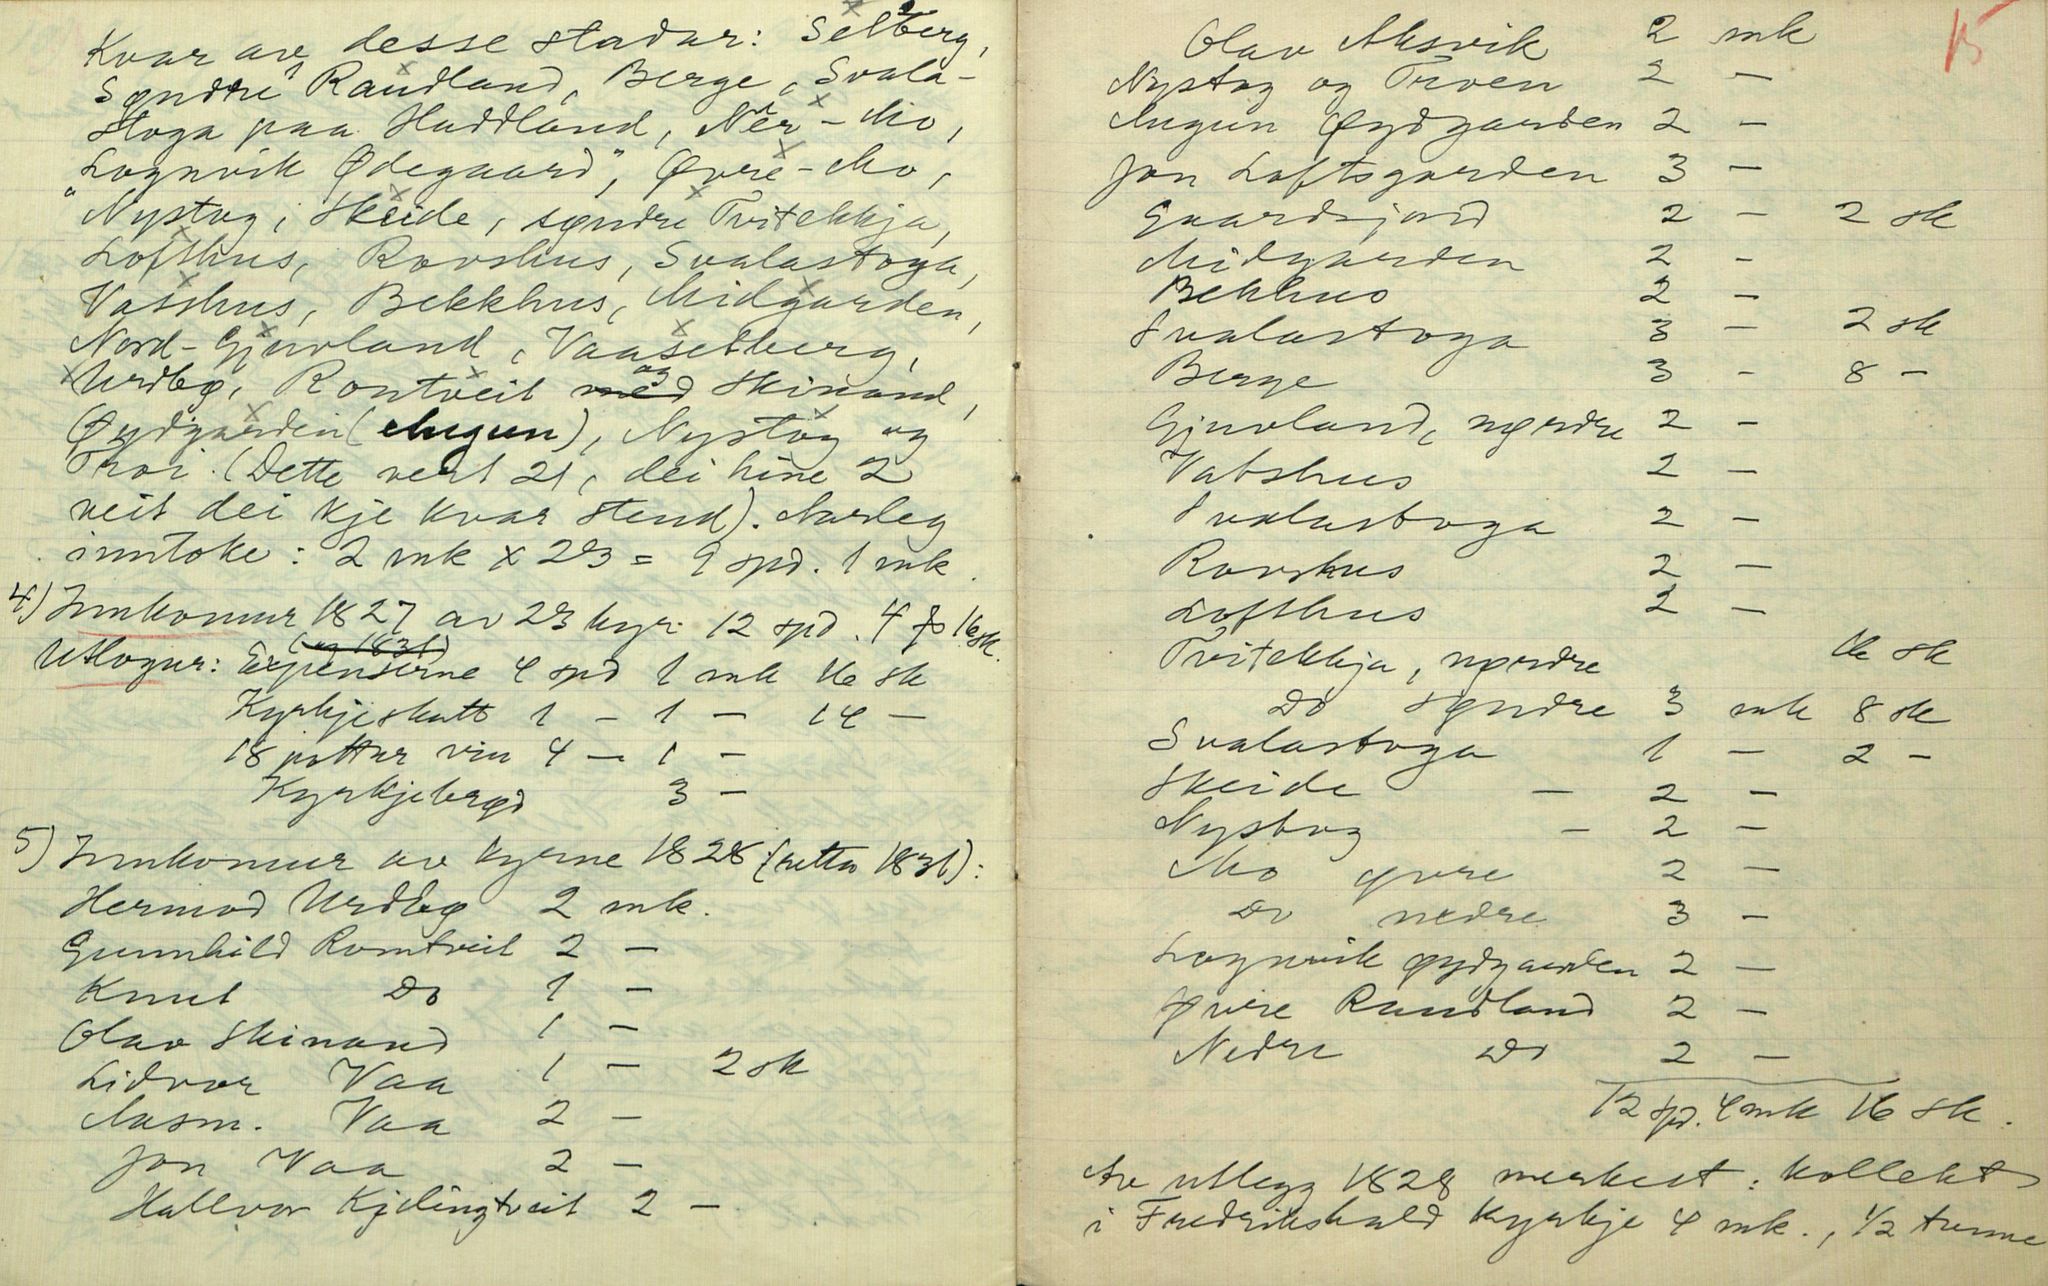 Kvar av desse stadar: Selberg,
Søndre Raudland, Berge, Svala-
stoga paa Haddland, Ner-Mo,
Lognvik Ødegaard", Øvre-Mo,
"Nystog, Skeide, søndre Tvitekkja,
Lofthus, Rovshus, Svalastoga,
Vasshus, Bekkhus, Midgarden,
Nord-Gjuvland, Vaaselberg,
Urdbø, Romtveit og Skinand,
Øydgarden (Augun), Nystog og
Troi. (Dette vert 21, dei hine 2
veit dei kje kvar stend). Aarleg
inntoke: 2 mk x 23 = 9 spd. 1 mk.
4) Innkomur 1827 av 23 kyr: 12 spd. 4 16 sk.
(og 1831)
Utlogur: Expenserne 4 spd 1 mk 16 sk
Kyrkjeskatt 1 - 1 - 14 -
18 pottar vin 4 - 1 -
Kyrkjebrød 3 -
5) Innkomur av kyrne 1828 (retta 1831):
Hermod Urdbø 2 mk.
Gunnhild Romtveit 2 -
Knut Do 1 -
Olav Skinand 1 -
Lidvor Vaa 1 - 2 sk
Aasm. Vaa 2 -
Jon Vaa 2 -
Hallvor Kjelingtveit 2 -
15
Olav Aksvik 2 mk
Nystog og Troen 2 -
Augun Øydgarden 2 -
Jon Loftsgarden 3 -
Gaardsjord 2 - 2 sk
Midgarden 2 -
Bekhus 2 -
Svalastoga 3 - 2 sk
Berge 3 - 8 -
Gjuvland, nørdre 2 -
Vatshus 2 -
Svalastoga 2 -
Rovshus 2 -
Lofthus 2 -
Tvitekkja, nørdre 16 sk
Do søndre 3 mk 8 sk
Svalastoga 1 - 2 -
Skeide - 2 -
Nystog - 2 -
Mo øvre 2 -
Do nedre 3 -
Lognvik øydgarden 2 -
Øvre Raudland 2 -
Nedre Do 2 -
12 spd. 4 mk 16 sk.
Av utlegg 1828 merkest: kollekt
i Fredrikshald Kyrkje 4 mk., 1/2 tunne